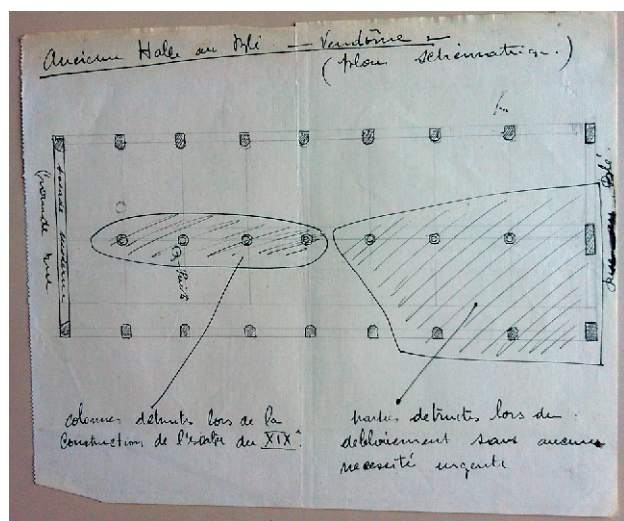 Ancienne Halle au Blé — Vendôme —
(plan schématique.)
façade moderne
Grande rue
Puits
Rue Blé.
colonnes détruites lors de la
construction de l'escalier du XIXe.
parties détruites lors du
déblaiement sans aucune
nécessité urgente